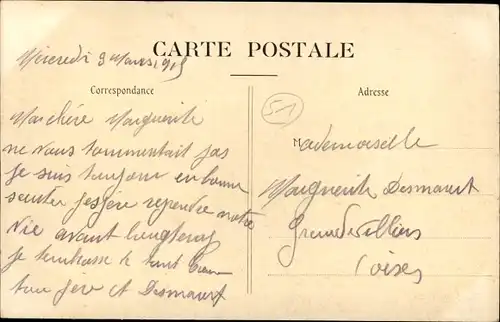 Mercredi 3 Mars 1915
CARTE POSTALE
Correspondance
Adresse
51
Ma chére Marguerite
ne vous tourmentait pas
Je suis toujour en bonne
santer J'espère reprendre notre
Vie avant longtemps
Je t'embrasse
ton père Desmaret
Mademoiselle
Marguerite Desmaret
Grandvilliers
(Oise)